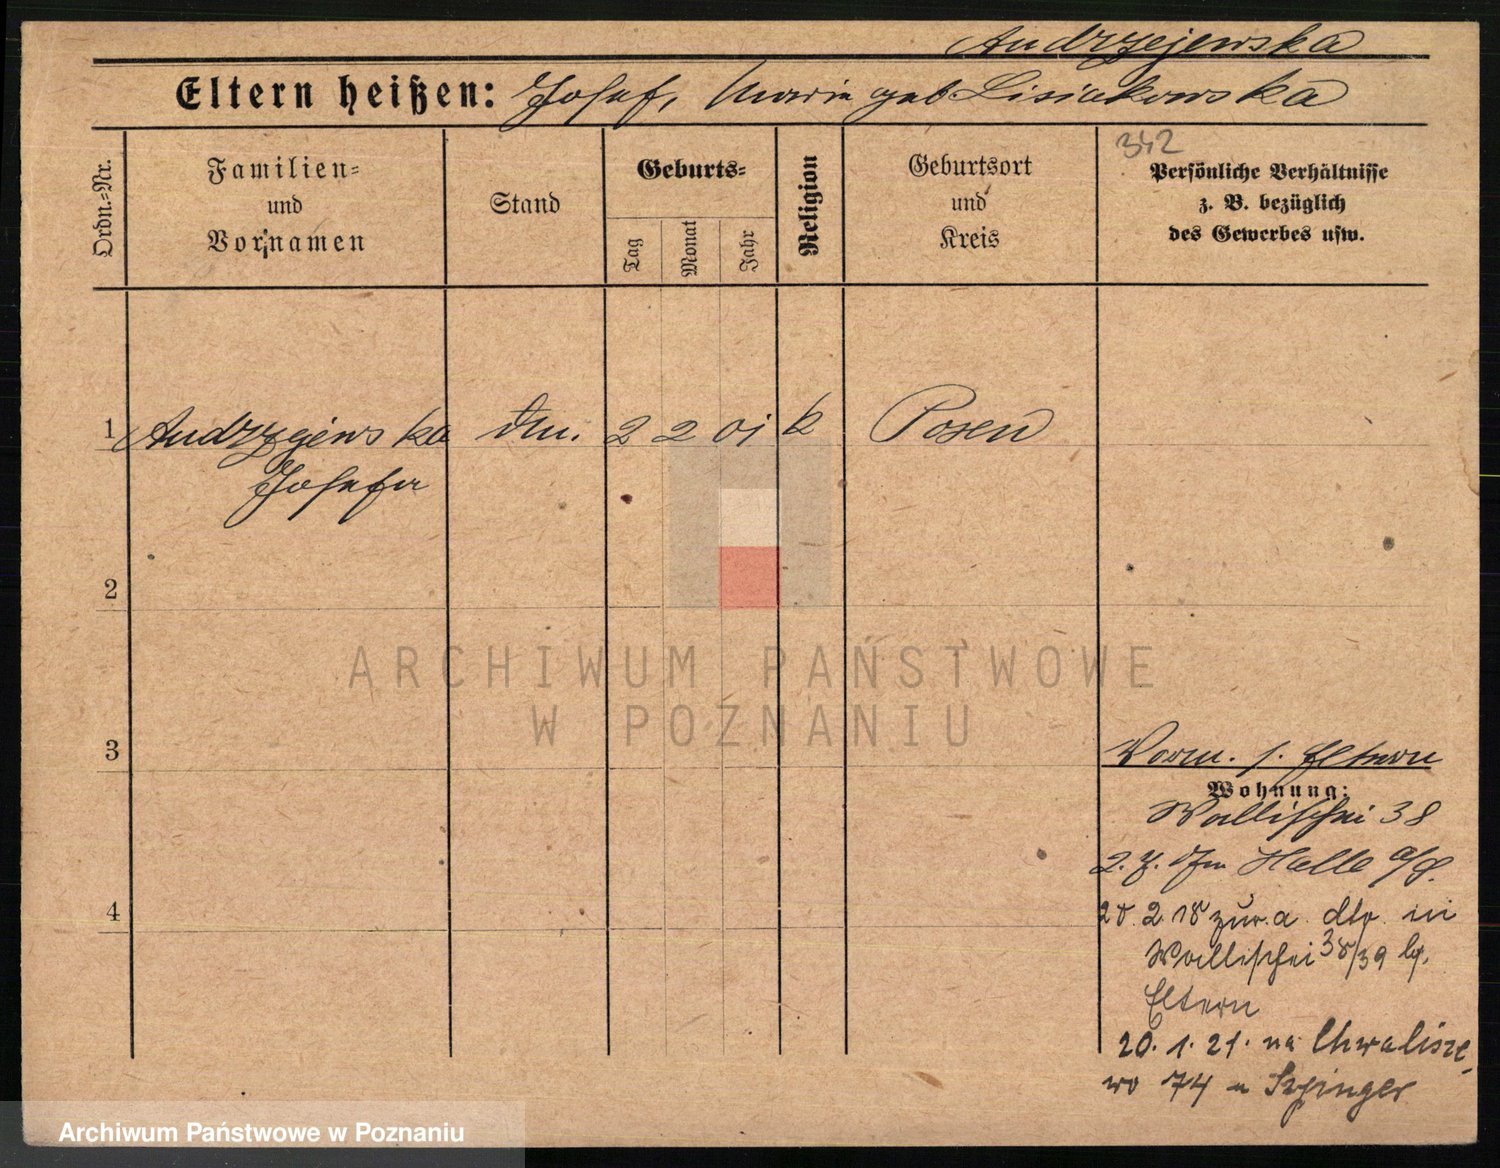 Andrzejewska
Eltern heißen: Josef, Maria geb. Lisiakowska
Ordn.-Nr.
Familien-
und
Vornamen
Stand
Geburts-
Tag
Monat
Jahr
Religion
Geburtsort
und
Kreis
342
Persönliche Verhältnisse
z. B. bezüglich
des Gewerbes usw.
1 Andrzejewska 2 2 01 k Posen
Josefa
2
3
4
Vorm. s. Eltern
Wohnung:
Wallischei 38
Halle a/S.
28. 2. 18 zur. a dto. in
Wallischei 38/39 bei
Eltern
20. 1. 21. na Chwalisze
wo 74 u Szpinger
ARCHIWUM PAŃSTWOWE
W POZNANIU
Archiwum Państwowe w Poznaniu